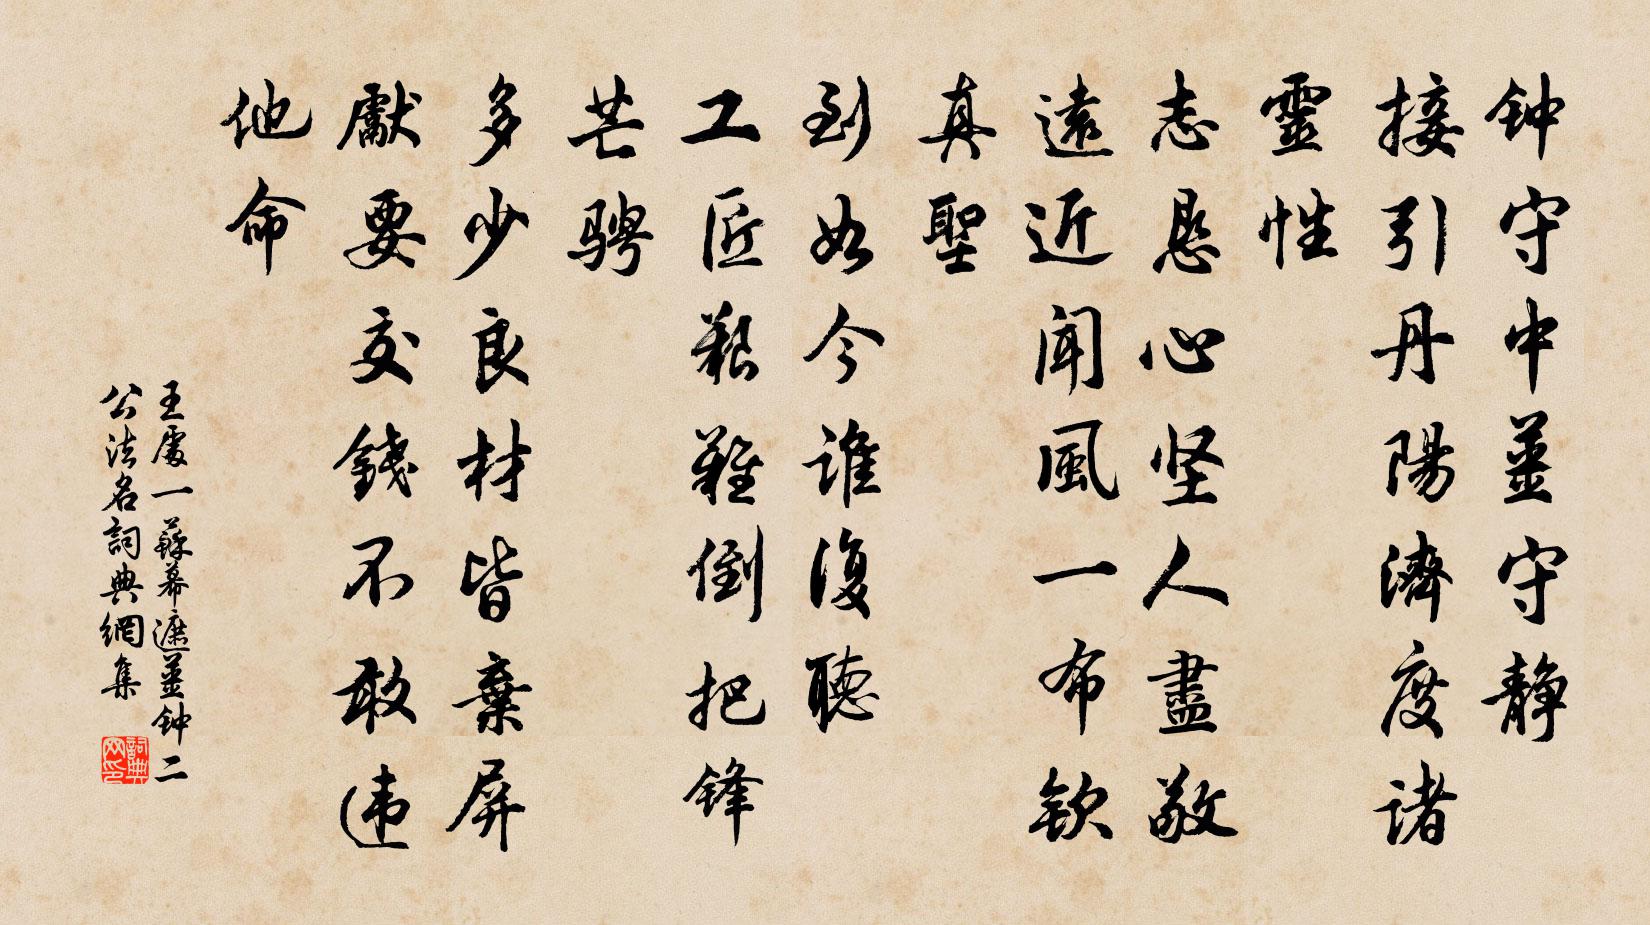 钟守中薑守静
接引丹陽濟度诸
靈性
志恳心坚人盡敬
遠近闻風一布欽
真聖
到如今谁復聽
工匠艱難倒把锋
芒骋
多少良材皆棄屏
獻要交錢不敢违
他命
王處一蘇幕遮薑钟二
公法名詞典網集
詞典网印